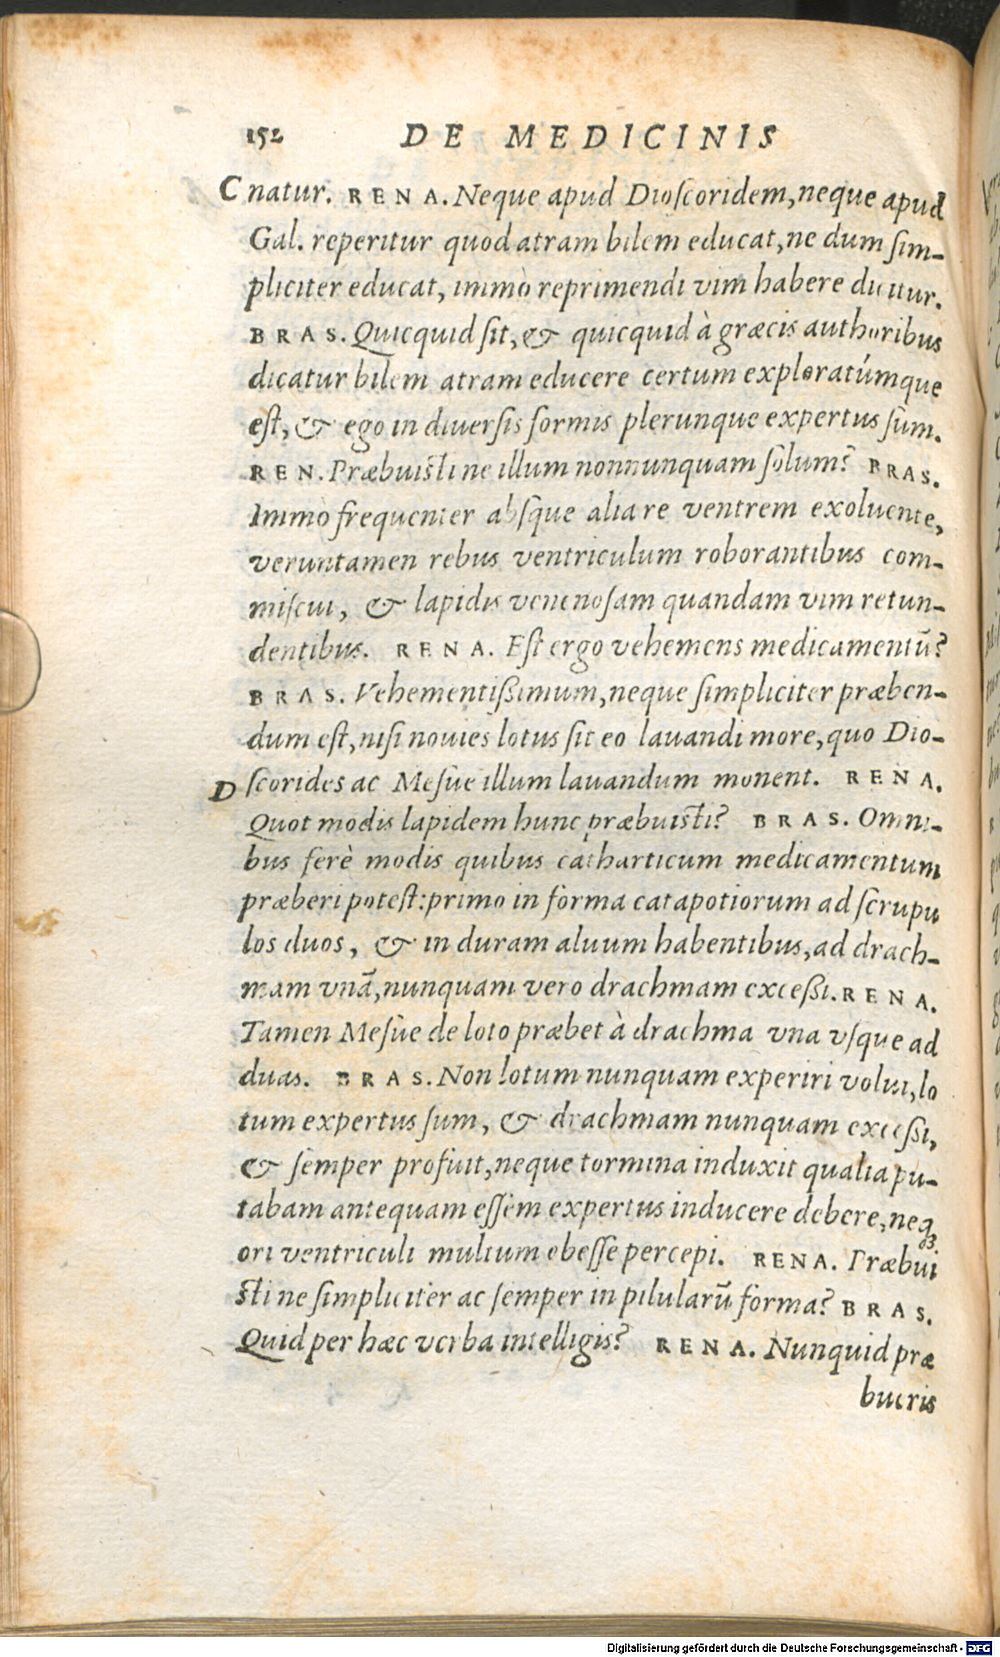 152 DE MEDICINIS
C natur. RENA. Neque apud Dioscoridem, neque apud
Gal. reperitur quod atram bilem educat, ne dum sim-
pliciter educat, immò reprimendi vim habere dicitur.
BRAS. Quicquid sit, & quicquid à græcis authoribus
dicatur bilem atram educere certum exploratúmque
est, & ego in diuersis formis plerunque expertus sum.
REN. Præbuisti ne illum nonnunquam solum? BRAS.
Immò frequenter absque alia re ventrem exoluente,
veruntamen rebus ventriculum roborantibus com-
miscui, & lapidis venenosam quandam vim retun-
dentibus. RENA. Est ergo vehemens medicamentū?
BRAS. Vehementißimum, neque simpliciter præben-
dum est, nisi nouies lotus sit eo lauandi more, quo Dio-
D scorides ac Mesûe illum lauandum monent. RENA.
Quot modis lapidem hunc præbuisti? BRAS. Omni-
bus ferè modis quibus catharticum medicamentum
præberi potest: primo in forma catapotiorum ad scrupu
los duos, & in duram aluum habentibus, ad drach-
mam vnā, nunquam vero drachmam exceßi. RENA.
Tamen Mesûe de loto præbet à drachma vna vsque ad
duas. BRAS. Non lotum nunquam experiri volui, lo
tum expertus sum, & drachmam nunquam exceßi,
& semper profuit, neque tormina induxit qualia pu-
tabam antequam essem expertus inducere debere, neq;
ori ventriculi multum obesse percepi. RENA. Præbui
sti ne simpliciter ac semper in pilularū forma? BRAS.
Quid per hæc verba intelligis? RENA. Nunquid præ
bueris
Digitalisierung gefördert durch die Deutsche Forschungsgemeinschaft - DFG